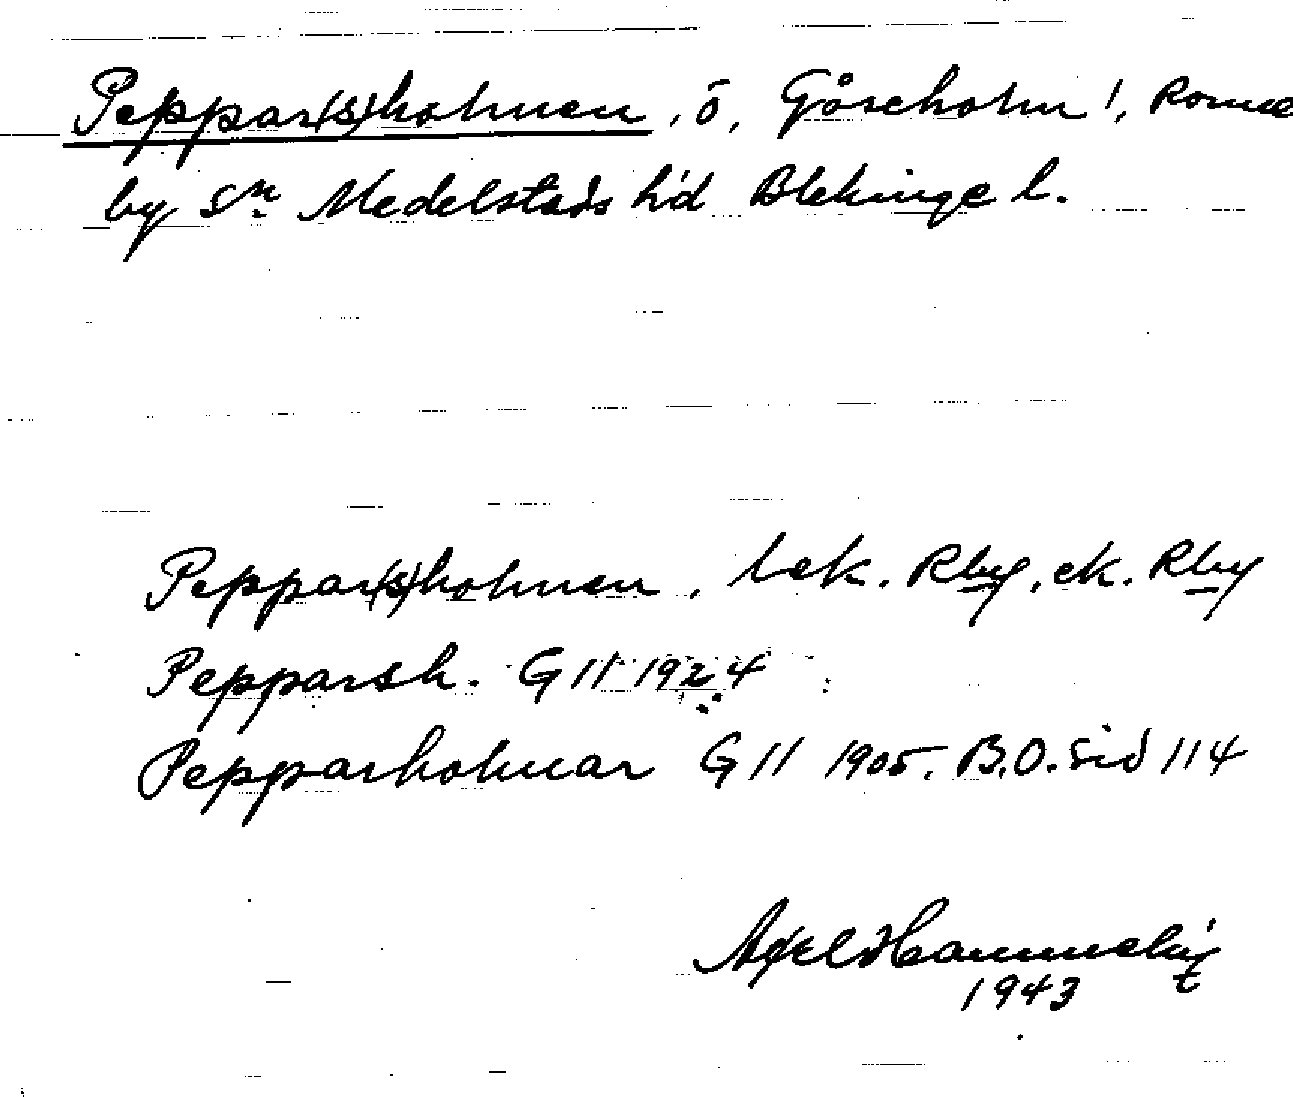 Peppar(s)holmen, ö, Göreholm!, Ronne
by sn Medelstads hd Blekinge l.
Peppar(s)holmen, lek. Rby, ek. Rby
Pepparsh. G11 1924
Pepparholmar G11 1905. B.O. sid 114
Axel
1943